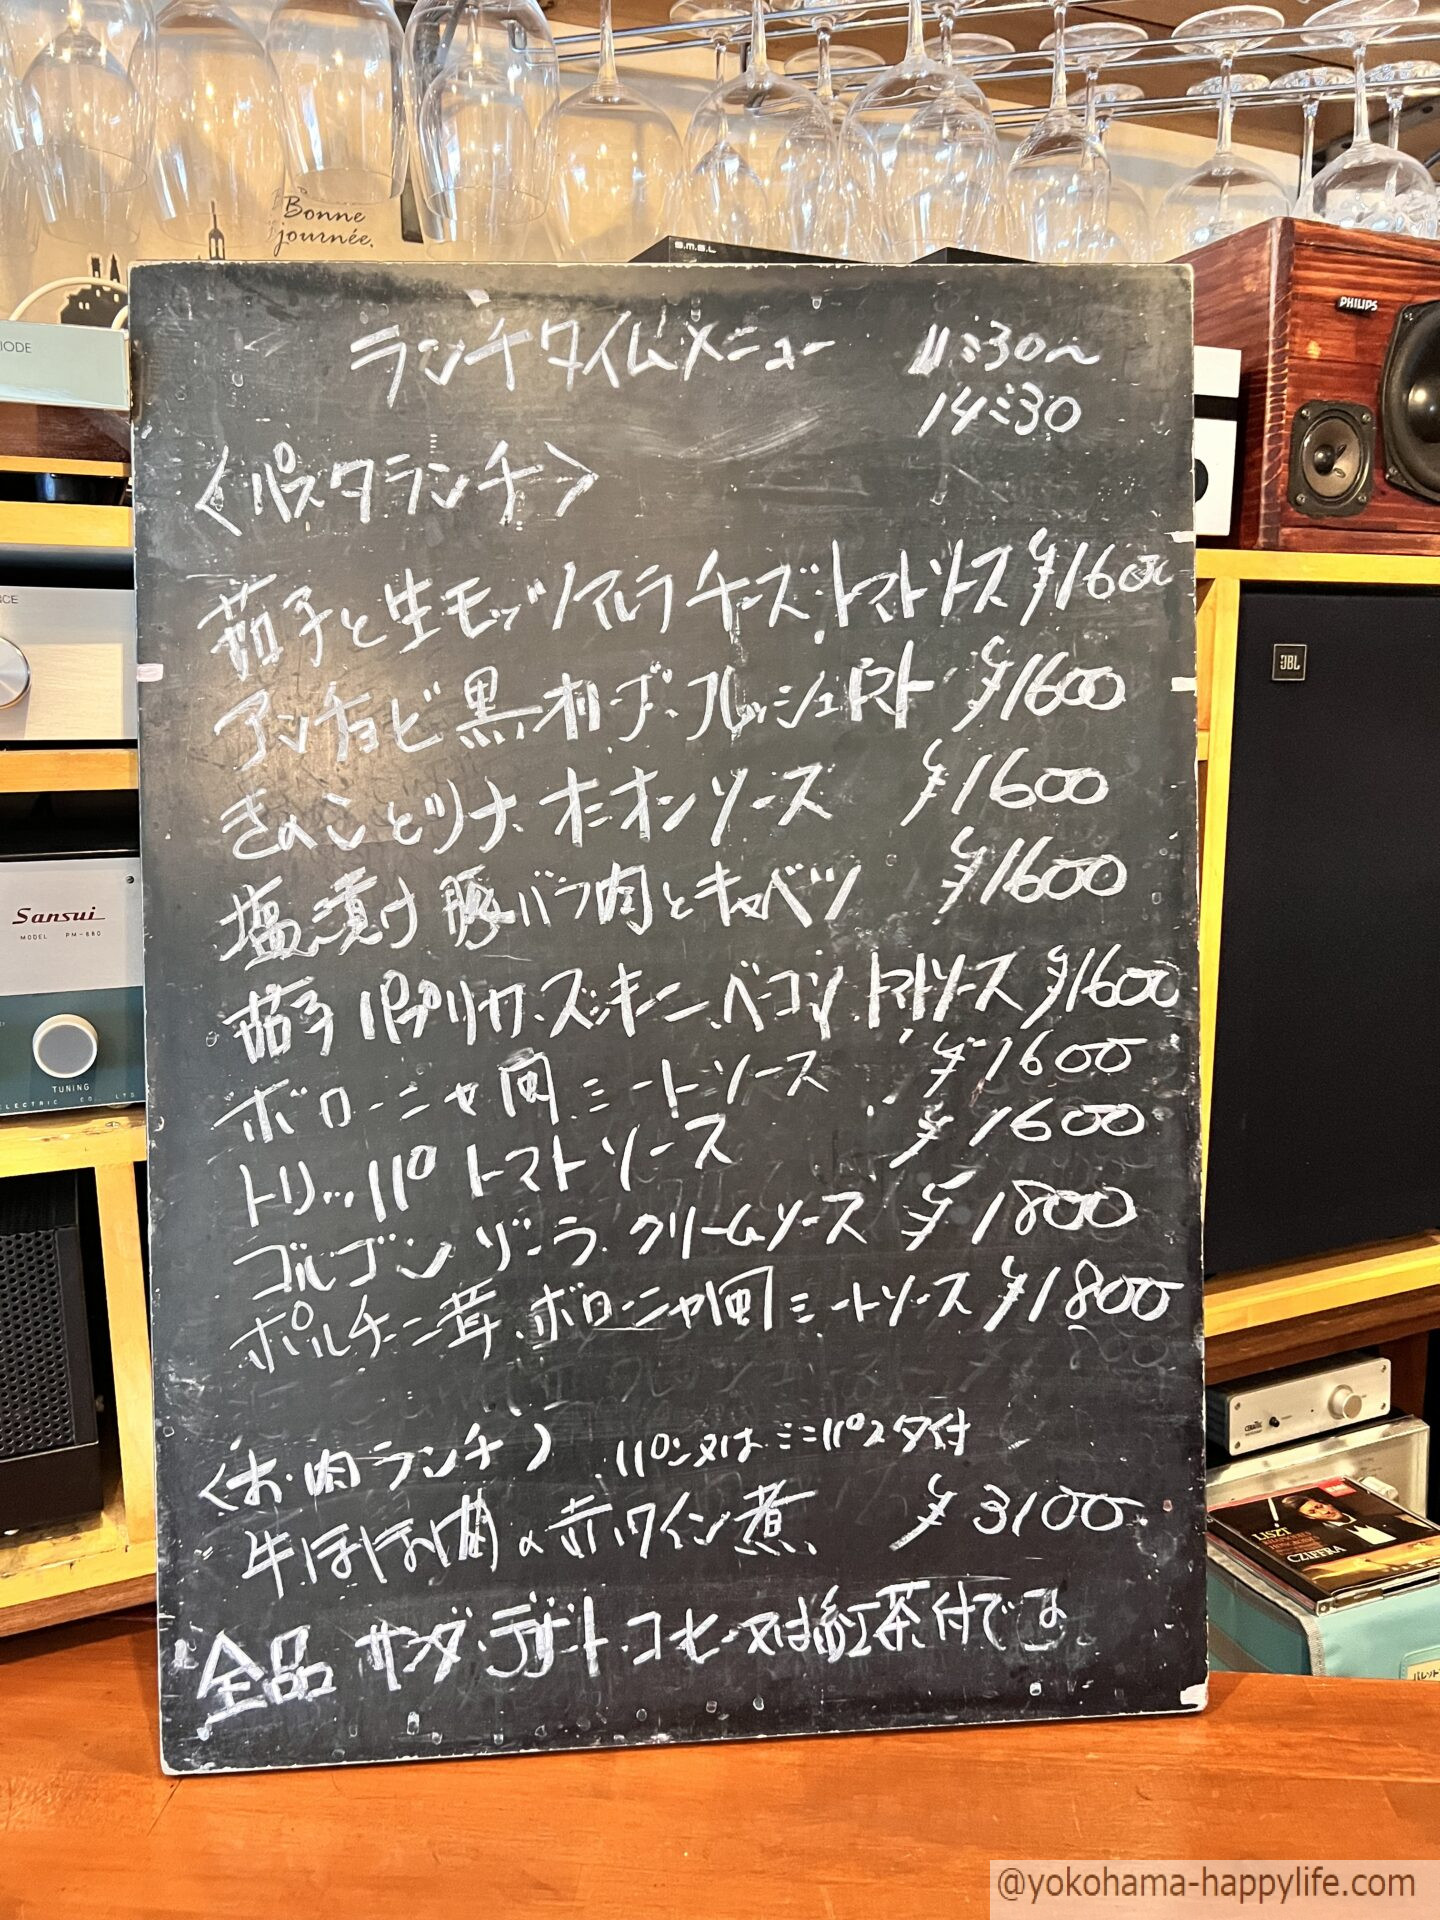 Bonne
journée.
S.M.S.L
PHILIPS
IODE
NCE
JBL
Sansui
MODEL PM-880
TUNING
ELECTRIC CO., LTD
ランチタイムメニュー 11:30〜
14:30
〈パスタランチ〉
茄子と生モッツアルラチーズ.トマトソース ¥1600
アンチョビ黒オリーブ.フレッシュトマト ¥1600
きのことツナ.オニオンソース ¥1600
塩漬け豚バラ肉とキャベツ ¥1600
茄子パプリカ.ズッキーニ.ベーコン.トマトソース ¥1600
ボローニャ風ミートソース ¥1600
トリッパトマトソース ¥1600
ゴルゴンゾーラ.クリームソース ¥1800
ポルチーニ茸.ボローニャ風ミートソース ¥1800
〈お肉ランチ〉 パン又はミニパスタ付
牛ほほ肉の赤ワイン煮 ¥3100
全品 サラダ.デザート.コーヒー又は紅茶付です
LISZT
CZIFFRA
@yokohama-happylife.com